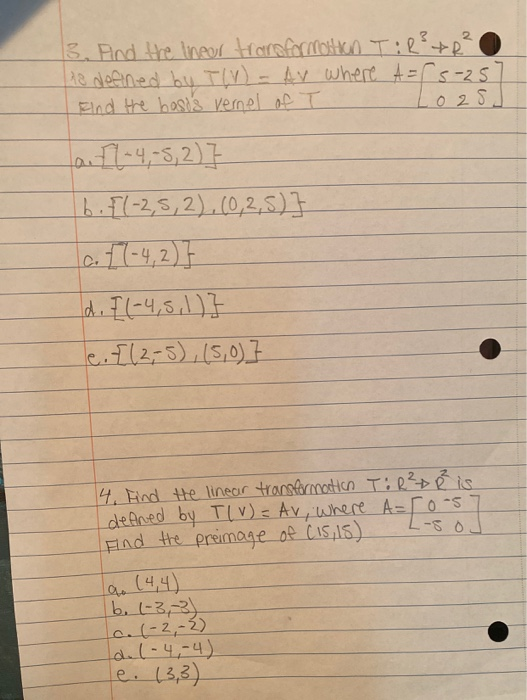 3. Find the linear transformation T: R³→R²
is defined by T(V) = Av where A = [5 -2 5
Find the basis kernel of T 0 2 5]
a. {(-4,-5,2)}
b. {(-2,5,2),(0,2,5)}
c. {(-4,2)}
d. {(-4,5,1)}
e. {(2,-5),(5,0)}
4. Find the linear transformation T: R²→R² is
defined by T(v) = Av, where A = [0 -5
Find the preimage of (15,15) -5 0]
a. (4,4)
b. (-3,-3)
c. (-2,-2)
d. (-4,-4)
e. (3,3)